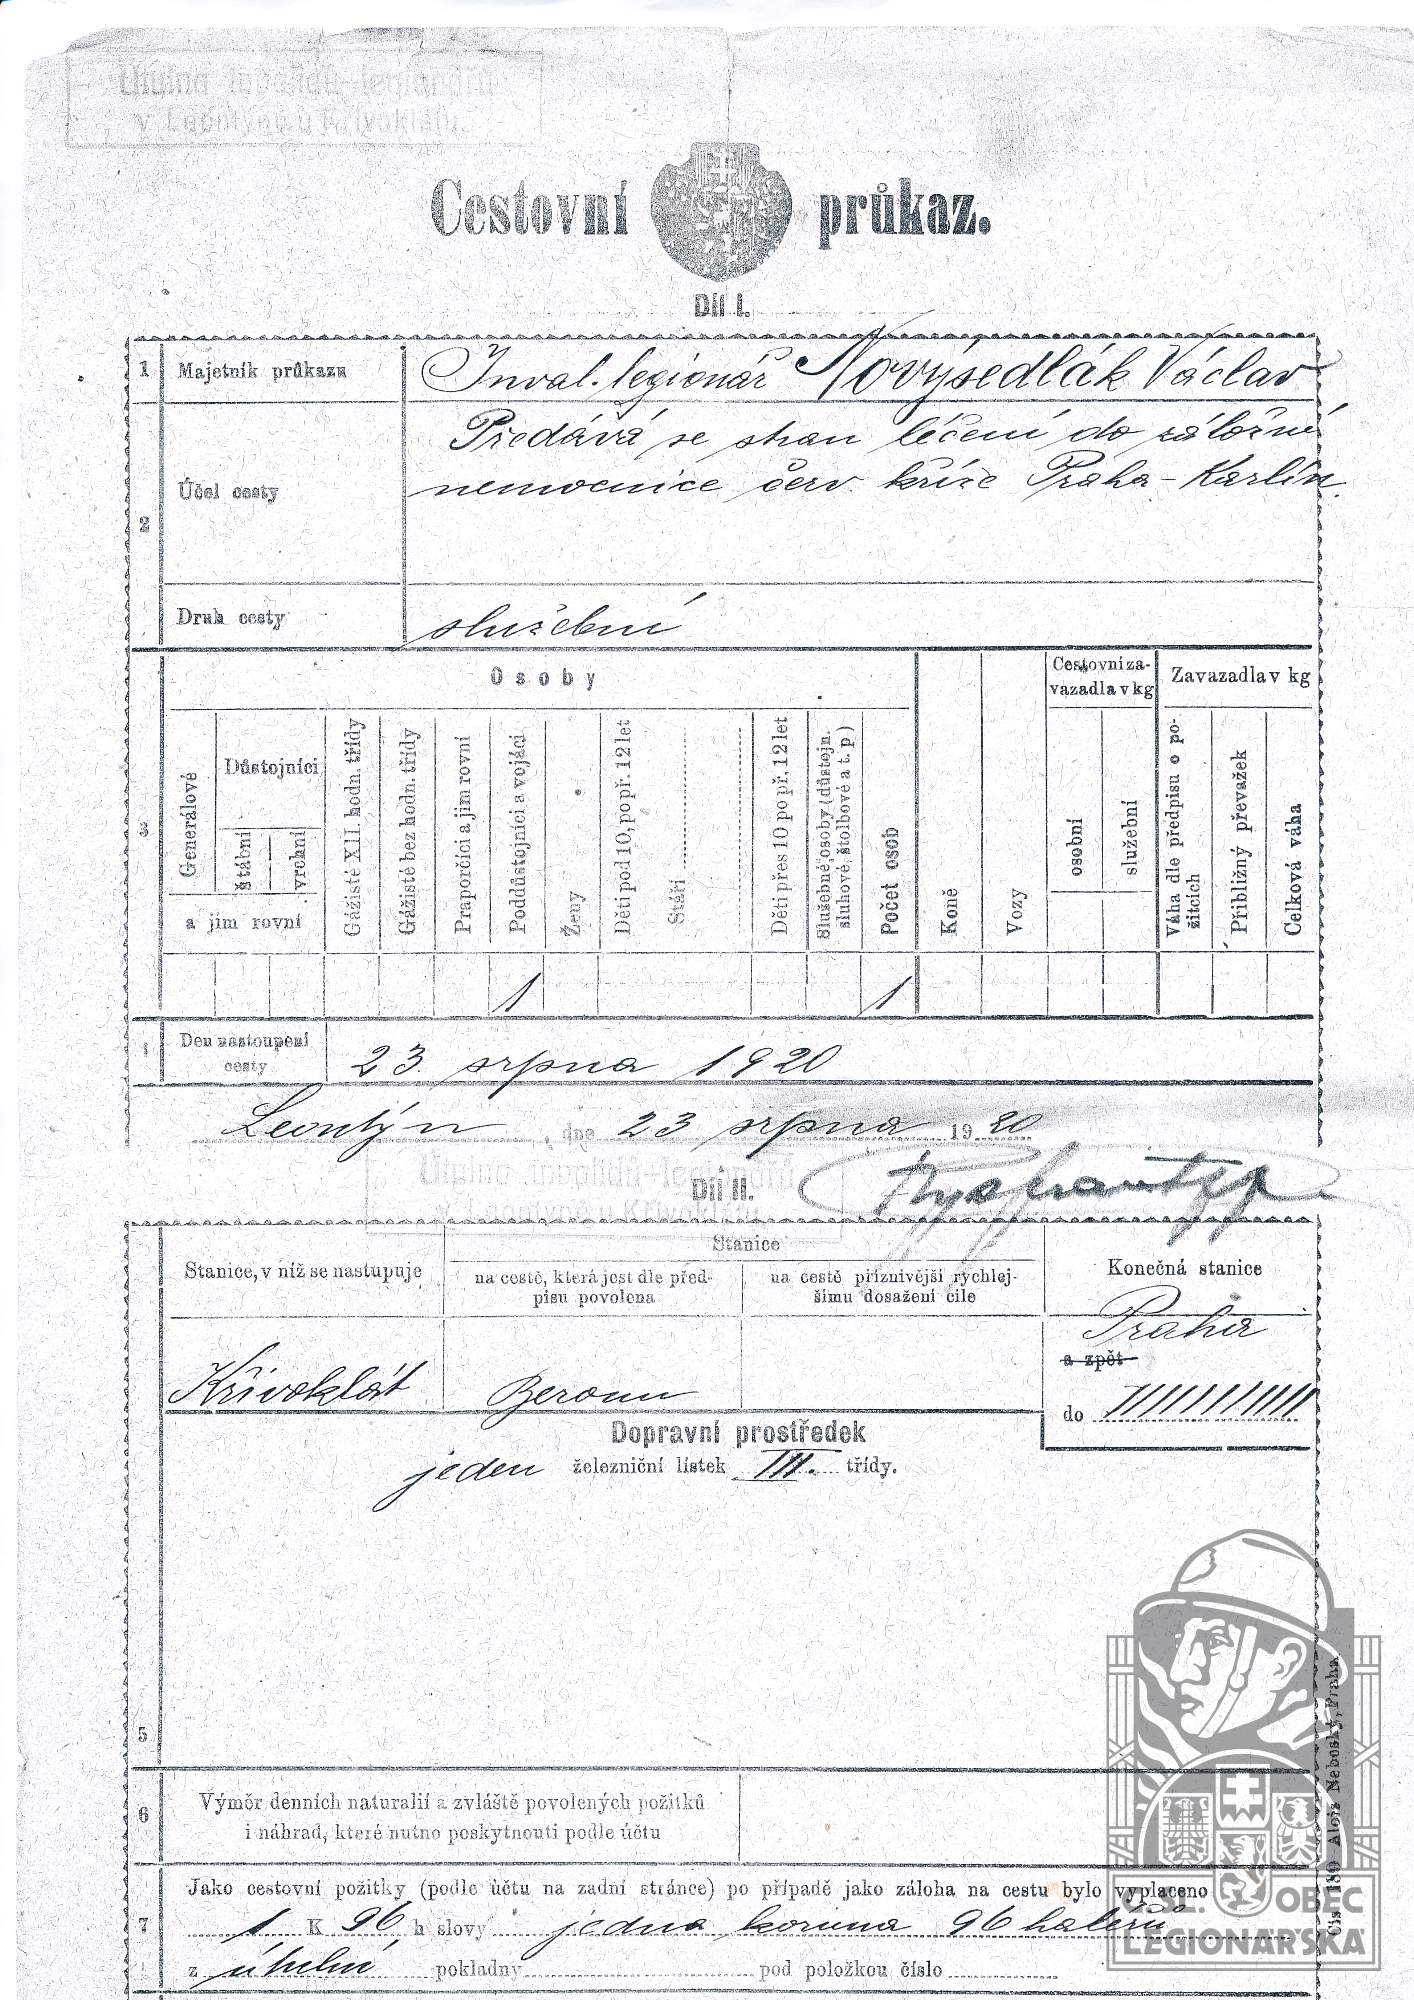 Útulna invalidů-legionářů
v Leontýně u Křivoklátu.
Cestovní průkaz.
Díl I.
1 Majetník průkazu Inval. legionář Novýsedlák Václav
Předává se stran léčení do záložné
Účel cesty nemocnice červ. kříže Praha-Karlín.
2
Druh cesty služební
Osoby
Cestovní za-
vazadla v kg
Zavazadla v kg
Generálové
Důstojníci
štábní
vrchní
a jim rovní
Gážisté XII. hodn. třídy
Gážisté bez hodn. třídy
Praporčíci a jim rovní
Poddůstojníci a vojáci
Ženy
Děti pod 10, po př. 12 let
Stáří
Děti přes 10 po př. 12 let
Služebné osoby (důstojn.
sluhové, štolbové a t. p.)
Počet osob
Koně
Vozy
osobní
služební
Váha dle předpisu o po-
žitcích
Přibližný převažek
Celková váha
3
1 1
4 Den nastoupení
cesty
23. srpna 1920
Leontýn, dne 23 srpna 1920
Útulna invalidů-legionářů
v Leontýně u Křivoklátu.
Díl II.
Stanice, v níž se nastupuje
Stanice
na cestě, která jest dle před-
pisu povolena
na cestě příznivější rychlej-
šímu dosažení cíle
Konečná stanice
Praha
a zpět
Křivoklát Beroun
do
Dopravní prostředek
jeden železniční lístek III. třídy.
5
6 Výměr denních naturalií a zvláště povolených požitků
i náhrad, které nutno poskytnouti podle účtu
Jako cestovní požitky (podle účtu na zadní stránce) po případě jako záloha na cestu bylo vyplaceno
7 1 K 96 h slovy jedna koruna 96 haléřů
z úhelní pokladny pod položkou číslo
Čís 189 Alois Neboský, Praha
ČSL. OBEC
LEGIONÁŘSKÁ